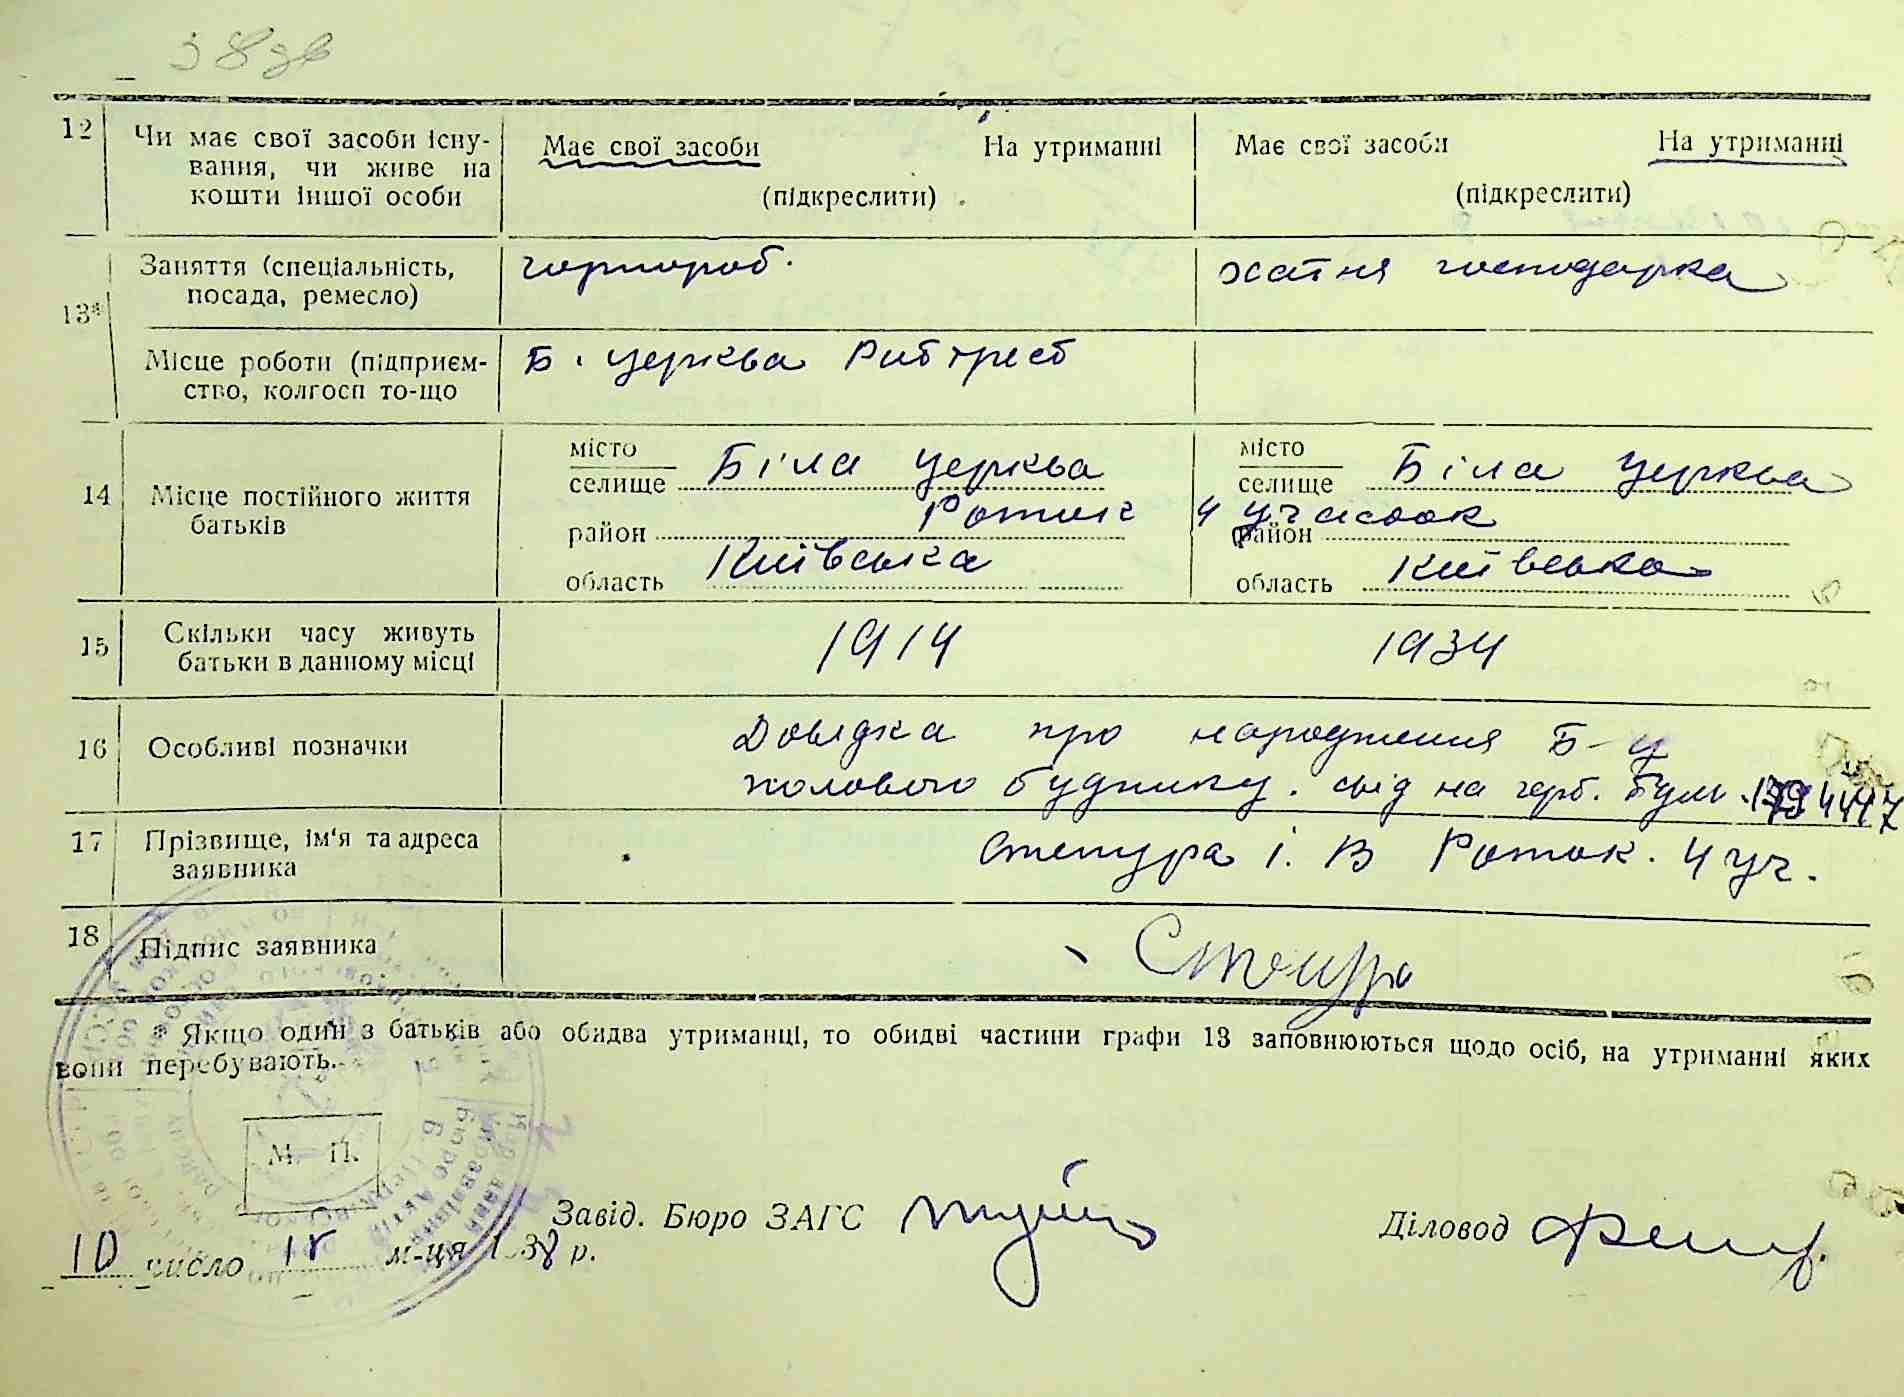 38 зв
12 Чи має свої засоби існу-
вання, чи живе на
кошти іншої особи
Має свої засоби На утриманні
(підкреслити)
Має свої засоби На утриманні
(підкреслити)
13* Заняття (спеціальність,
посада, ремесло)
чорнороб.
хатня господарка
Місце роботи (підприєм-
ство, колгосп то-що
Б. Церква Рибтрест
14 Місце постійного життя
батьків
місто
селище Біла Церква
район Роток 4 участок
область Київська
місто
селище Біла Церква
район
область Київська
15 Скільки часу живуть
батьки в данному місці
1914
1934
16 Особливі позначки
Довідка про народження Б-Ц
полового будинку. свід на герб.
17 Прізвище, ім'я та адреса
заявника
Степура І. В Роток. 4 уч.
18 Підпис заявника
Степура
* Якщо один з батьків або обидва утриманці, то обидві частини графи 13 заповнюються щодо осіб, на утриманні яких
вони перебувають.
М. П.
Завід. Бюро ЗАГС
Діловод
10 число м-ця 1938 р.